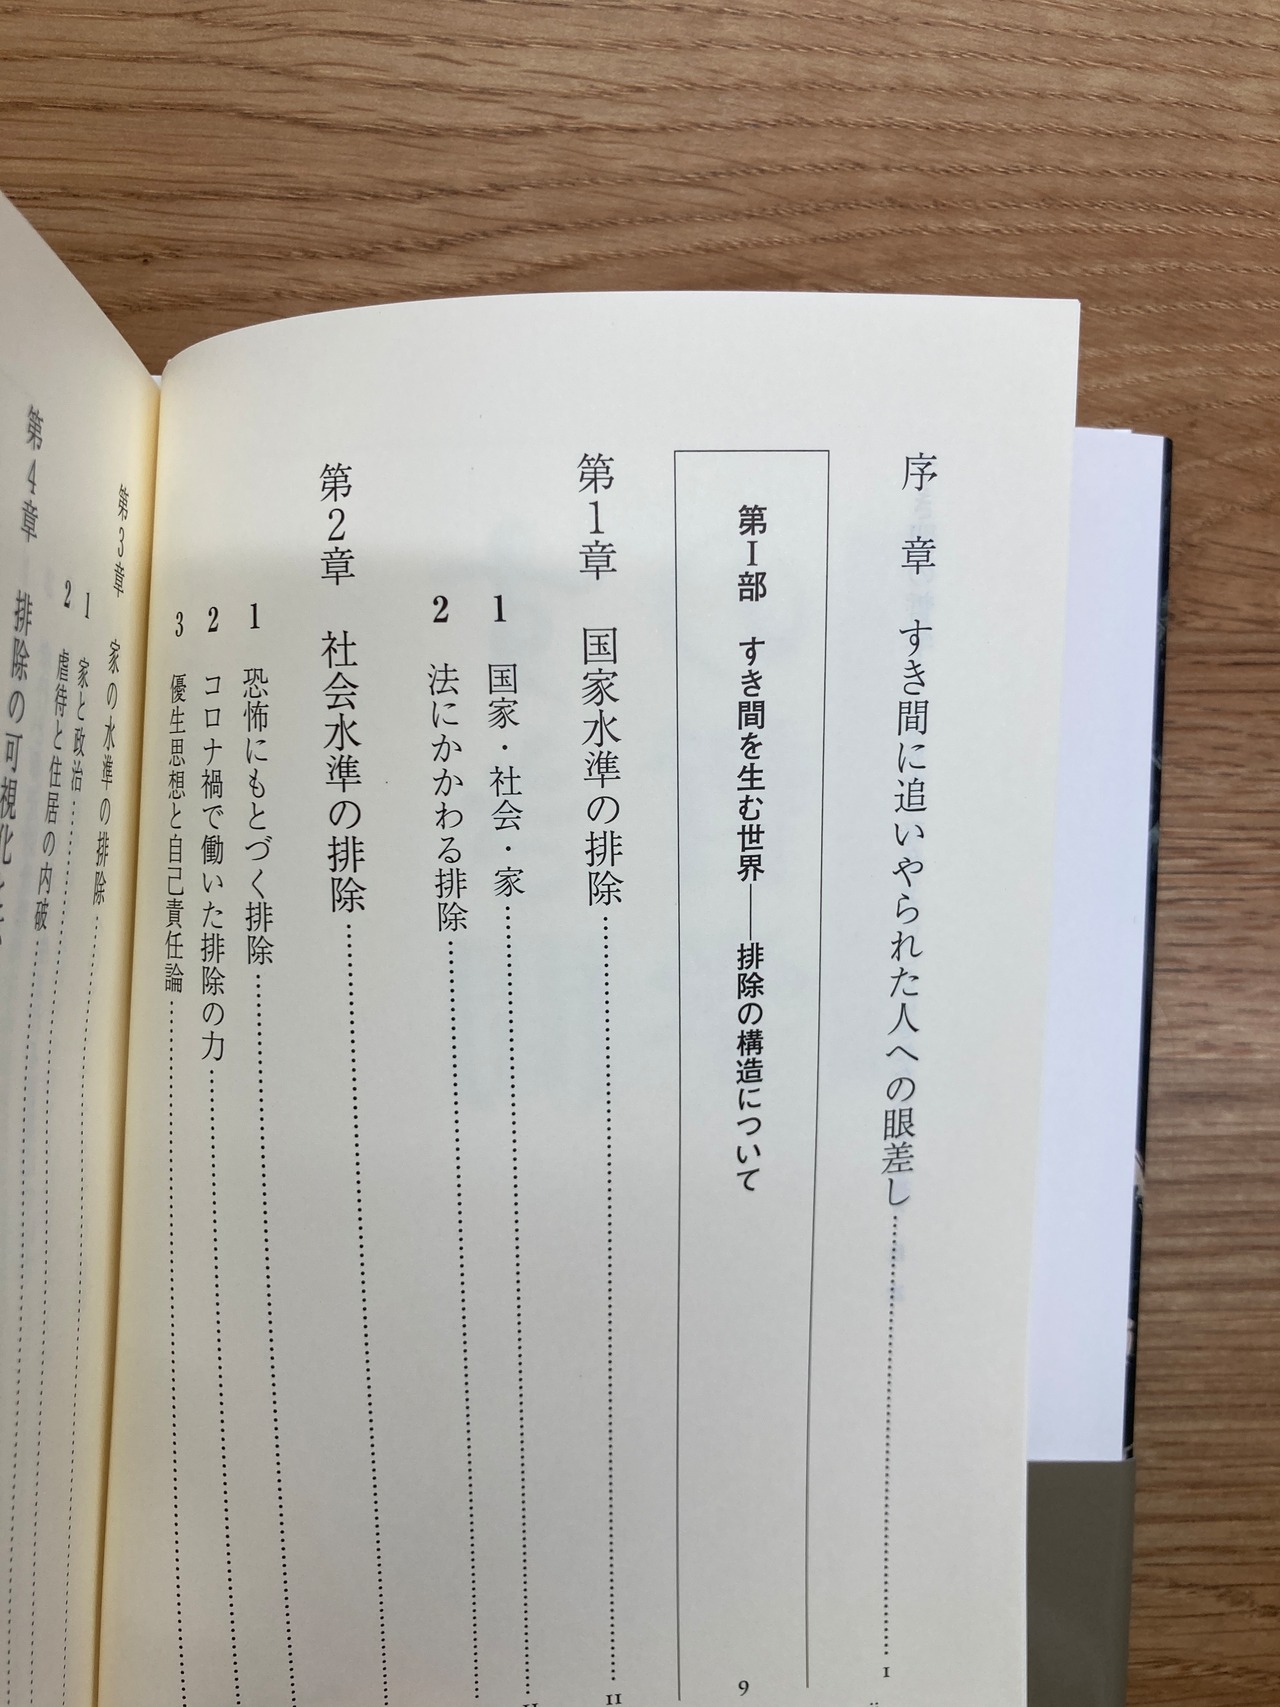 序　章　すき間に追いやられた人への眼差し……1
第Ⅰ部　すき間を生む世界――排除の構造について　9
第1章　国家水準の排除……11
1　国家・社会・家……11
2　法にかかわる排除……
第2章　社会水準の排除……
1　恐怖にもとづく排除……
2　コロナ禍で働いた排除の力……
3　優生思想と自己責任論……
第3章　家の水準の排除……
1　家と政治……
2　虐待と住居の内破……
第4章　排除の可視化